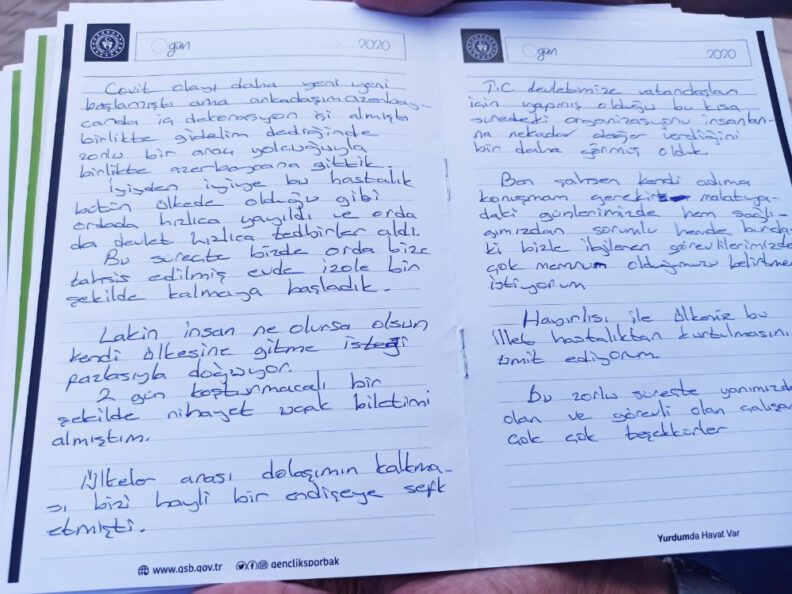 gün
2020
Covit olayı daha yeni yeni
başlamıştı ama arkadaşım azerbay-
canda iç dekorasyon işi almıştı
birlikte gidelim dediğinde
zorlu bir araç yolcuğuyla
birlikte azerbaycana gittik.
İyiden iyiye bu hastalık
bütün ülkede olduğu gibi
ordada hızlıca yayıldı ve orda
da devlet hızlıca tedbirler aldı
Bu süreçte bizde orda bize
tahsis edilmiş evde izole bir
şekilde kalmaya başladık.
Lakin insan ne olursa olsun
kendi ülkesine gitme isteği
fazlasıyla doğuyor.
2 gün koşturmacalı bir
şekilde nihayet uçak biletimi
almıştım.
Ülkeler arası dolaşımın kalkma-
sı bizi hayli bir endişeye sefk
etmişti.
www.gsb.gov.tr
gencliksporbak
gün
2020
T.C devletimize vatandaşları
için yapmış olduğu bu kısa
süredeki organizasyonu insanları-
na nekadar değer verdiğini
bir daha görmüş olduk.
Ben şahsen kendi adıma
konuşmam gerekir malatya-
daki günlerimizde hem sağlı-
ğımızdan sorumlu hemde burda-
ki bizle ilgilenen görevlilerimizde
çok memnum olduğumuzu belirtmek
istiyorum
Hayırlısı ile ülkemiz bu
illet hastalıktan kurtulmasını
ümit ediyorum
Bu zorlu süreçte yanımızda
olan ve görevli olan çalışan
çok çok teşekkürler
Yurdumda Hayat Var